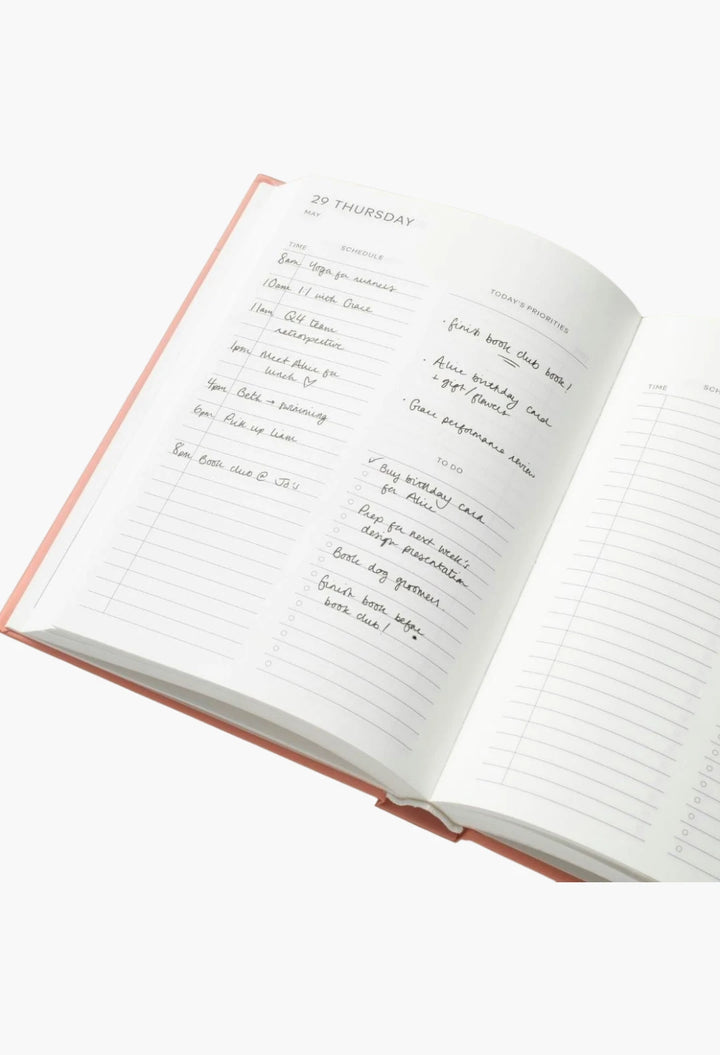 29 THURSDAY
MAY
TIME SCHEDULE
8am Yoga for runners
10am 1:1 with Grace
11am Q4 team
retrospective
1pm Meet Alice for
lunch ♡
4pm Beth → swimming
6pm Pick up Liam
8pm Book club @ Jo's
TODAY'S PRIORITIES
· finish book club book!
· Alice birthday card
+ gift/flowers
· Grace performance review
TO DO
✓ Buy birthday card
for Alice
Prep for next week's
design presentation
Book dog groomers
Finish book before
book club!
TIME SCH